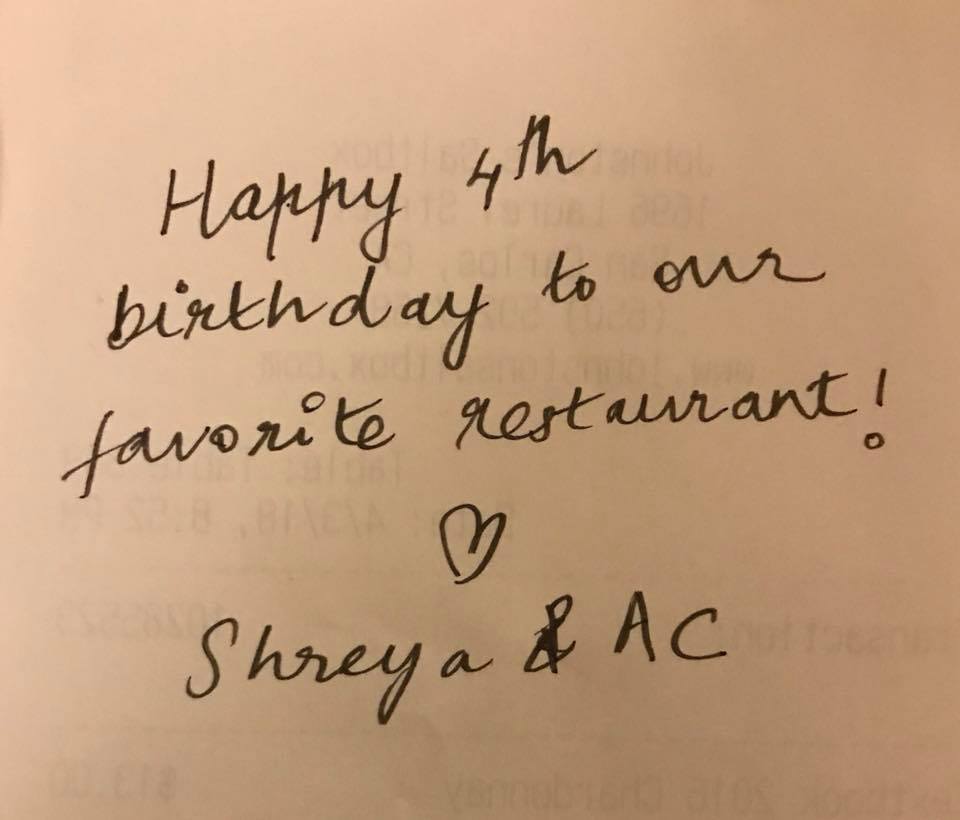 Happy 4th
birthday to our
favorite restaurant!
Shreya & AC